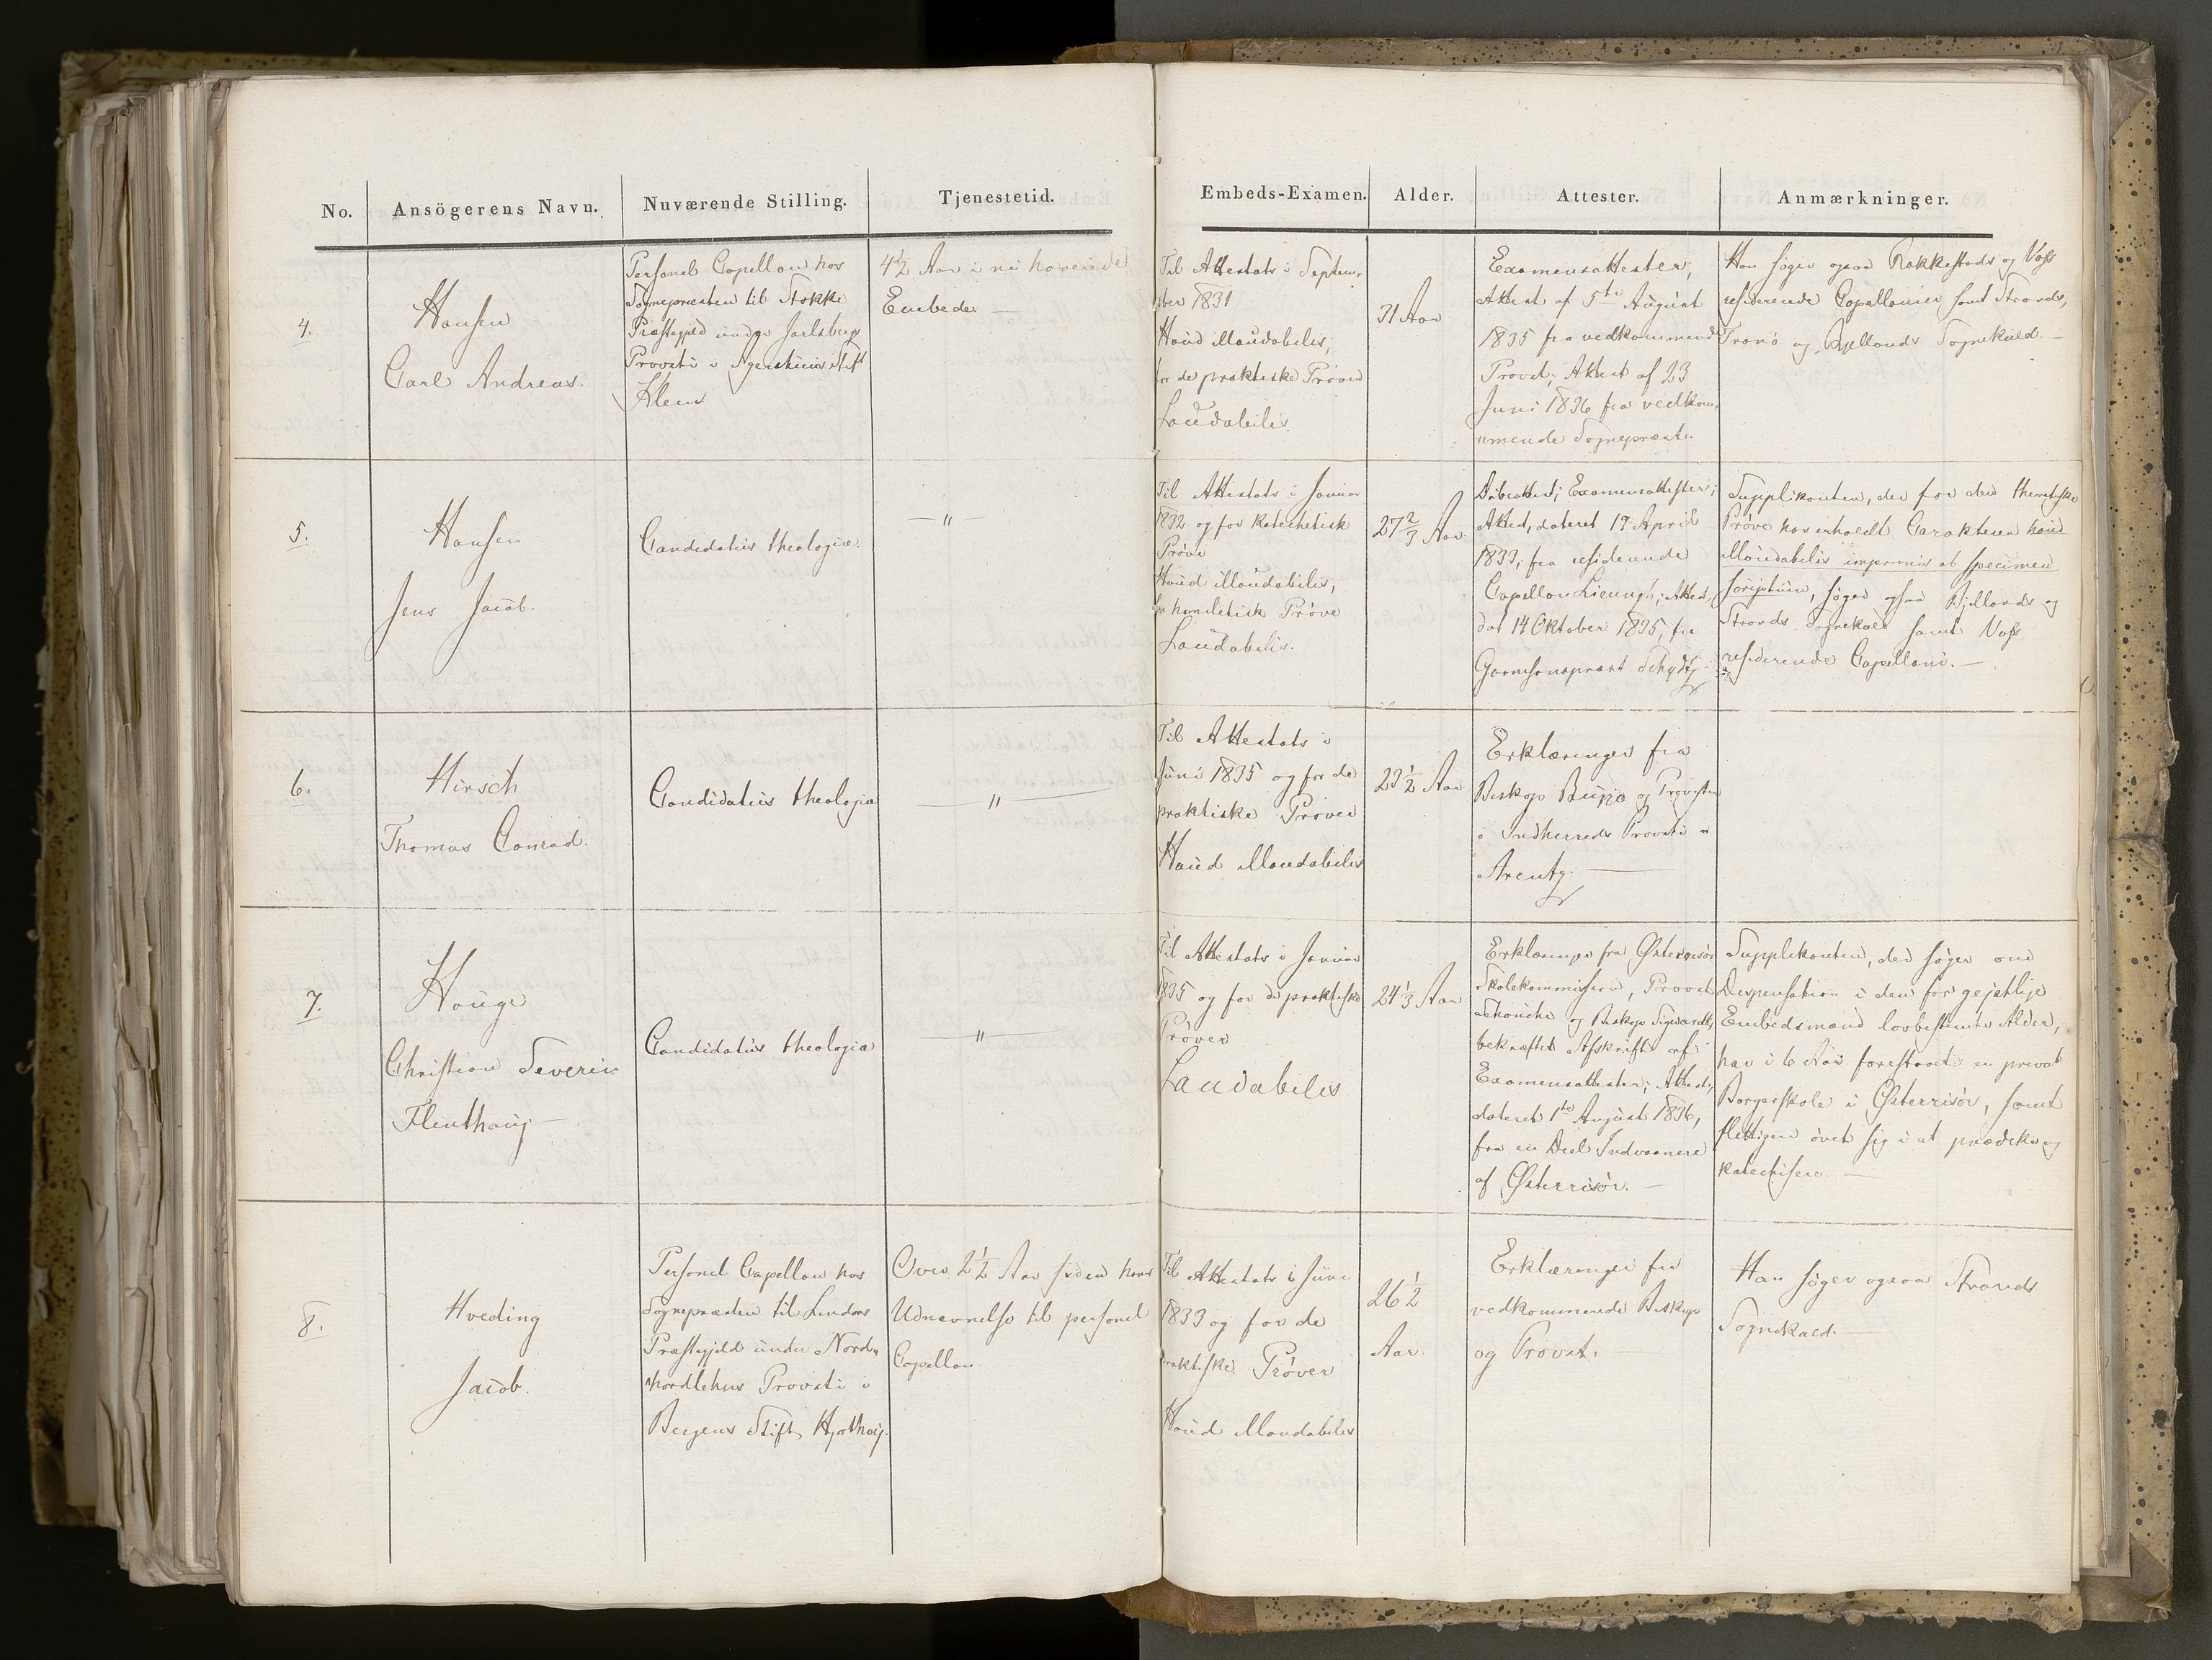 No. Ansögerens Navn. Nuværende Stilling. Tjenestetid. Embeds-Examen. Alder. Attester. Anmærkninger.
4.
Hansen
Carl Andreas.
Personel Capellan hos
Sognepræsten til Stokke
Præstegjeld under Jarlsbergs
Provsti i Agershuus Stift
Klem
4½ Aar i nu havende
Embede —
Til Attestats i Septem-
ber 1831
Haud illaudabilis,
for de praktiske Prøver
Laudabilis
31 Aar
Examensattester,
Attest af 5te August
1835 fra vedkommende
Provst, Attest af 23
Juni 1836 fra vedkom-
mende Sognepræst.
Han søger ogsaa Rakkestads og Voss
residerende Capellanier samt Strands,
Tranø og Bjellands Sognekald. —
5.
Hansen
Jens Jacob.
Candidatus theologiæ.
— " —
Til Attestats i Januar
1832 og for katechetisk
Prøve
Haud illaudabilis,
for homiletisk Prøve
Laudabilis.
27 2/3 Aar
Døbeattest; Examensattester;
Attest, dateret 19 April
1833, fra residerende
Capellan Lieungh; Attest,
dat 14 Oktober 1835, fra
Garnisonsprest Schydtz
Supplikanten, der for den theoretiske
Prøve har erholdt Carakteren haud
illaudabilis imprimis ob specimen
scriptum, søger ogsaa Bjellands og
Strands Sognekald samt Voss
residerende Capellani. —
6.
Hirsch
Thomas Conrad.
Candidatus theologiæ
— " —
Til Attestats i
Juni 1835 og for de
praktiske Prøver
Haud illaudabilis
23½ Aar
Erklæringer fra
Biskop Bugge og Provsten
i Indherreds Provsti
Arentz. —
7.
Hauge
Christian Severin
Flinthoug —
Candidatus theologiæ
— " —
Til Attestats i Januar
1835 og for de praktiske
Prøver
Laudabilis
24 1/3 Aar
Erklæringer fra Østerrisør
Skolekommission, Provst
og Biskop Sigwardt;
bekræftet Afskrift af
Examensattester; Attest,
dateret 1te August 1836,
fra en Deel Indvaanere
af Østerrisør. —
Supplikanten, der søger om
Dispensation i den for gejstlige
Embedsmænd lovbestemte Alder,
har i 6 Aar forestaaet en privat
Borgerskole i Østerrisør, samt
flittigen øvet sig i at prædike og
katechisere. —
8.
Hveding
Jacob.
Personel Capellan hos
Sognepræsten til Lindaas
Præstegjeld under Nord-
hordlehns Provsti i
Bergens Stift, Hjorthøy.
Over 2½ Aar siden hans
Udnævnelse til personel
Capellan
Til Attestats i Juni
1833 og for de
praktiske Prøver
Haud illaudabilis
26½
Aar.
Erklæringer fra
vedkommende Biskop
og Provst. —
Han søger ogsaa Strands
Sognekald. —